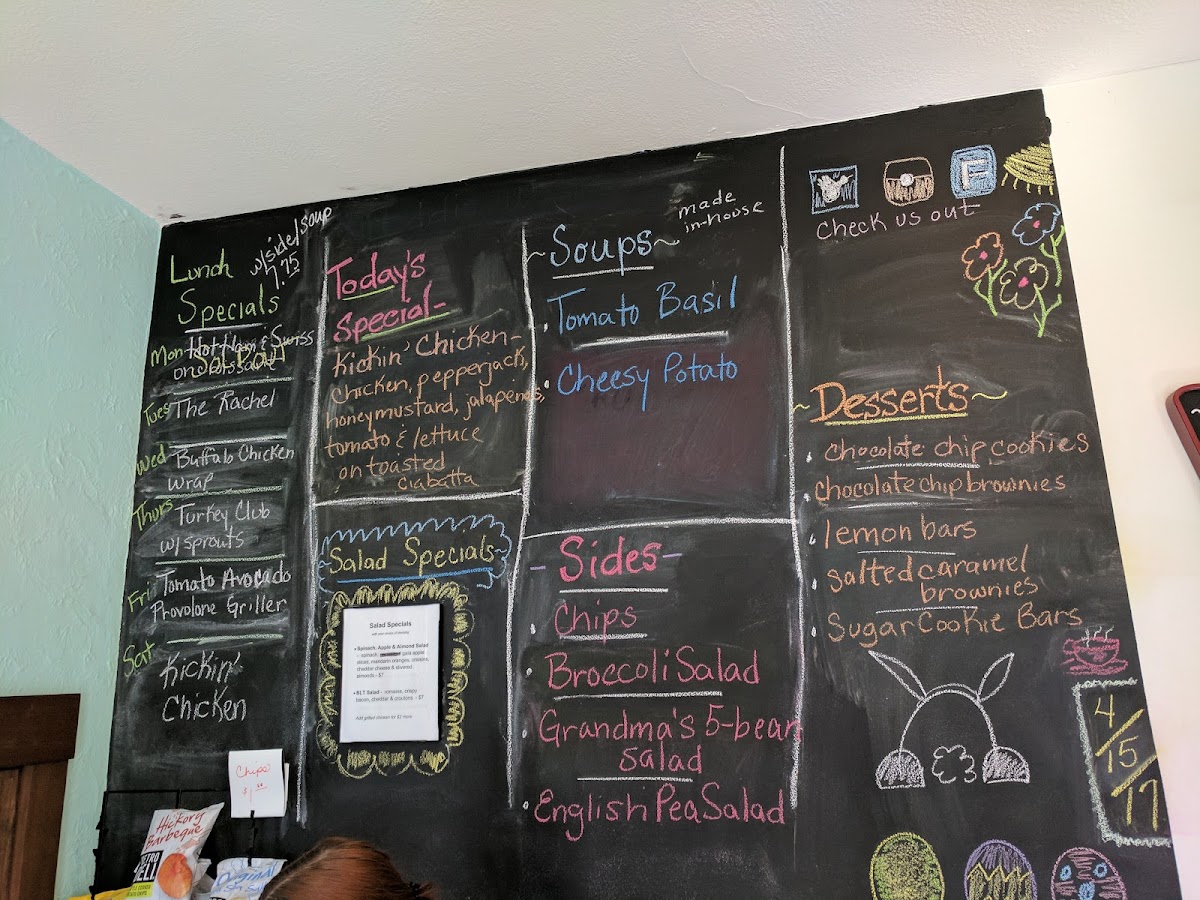 Lunch
Specials
w/side/soup
7.75
Mon
Hot Ham & Swiss
on
Tues The Rachel
Wed Buffalo Chicken
wrap
Thurs Turkey Club
w/ sprouts
Fri Tomato Avocado
Provolone Griller
Sat
Kickin'
Chicken
Today's
Special-
Kickin' Chicken-
Chicken, pepperjack,
honeymustard, jalapeños,
tomato & lettuce
on toasted
ciabatta
~Salad Specials~
Salad Specials
• Spinach, Apple & Almond Salad
– spinach, gala apple
slices, mandarin oranges, craisins,
cheddar cheese & slivered
almonds - $7
• BLT Salad – romaine, crispy
bacon, cheddar & croutons - $7
Add grilled chicken for $2 more
~Soups~
made
in-house
• Tomato Basil
• Cheesy Potato
- Sides -
Chips
• Broccoli Salad
• Grandma's 5-bean
salad
• English Pea Salad
F
check us out
~Desserts~
• chocolate chip cookies
• chocolate chip brownies
• lemon bars
• salted caramel
brownies
• Sugar Cookie Bars
4/
15/
17
Chips
$1.00
Hickory
Barbeque
Original